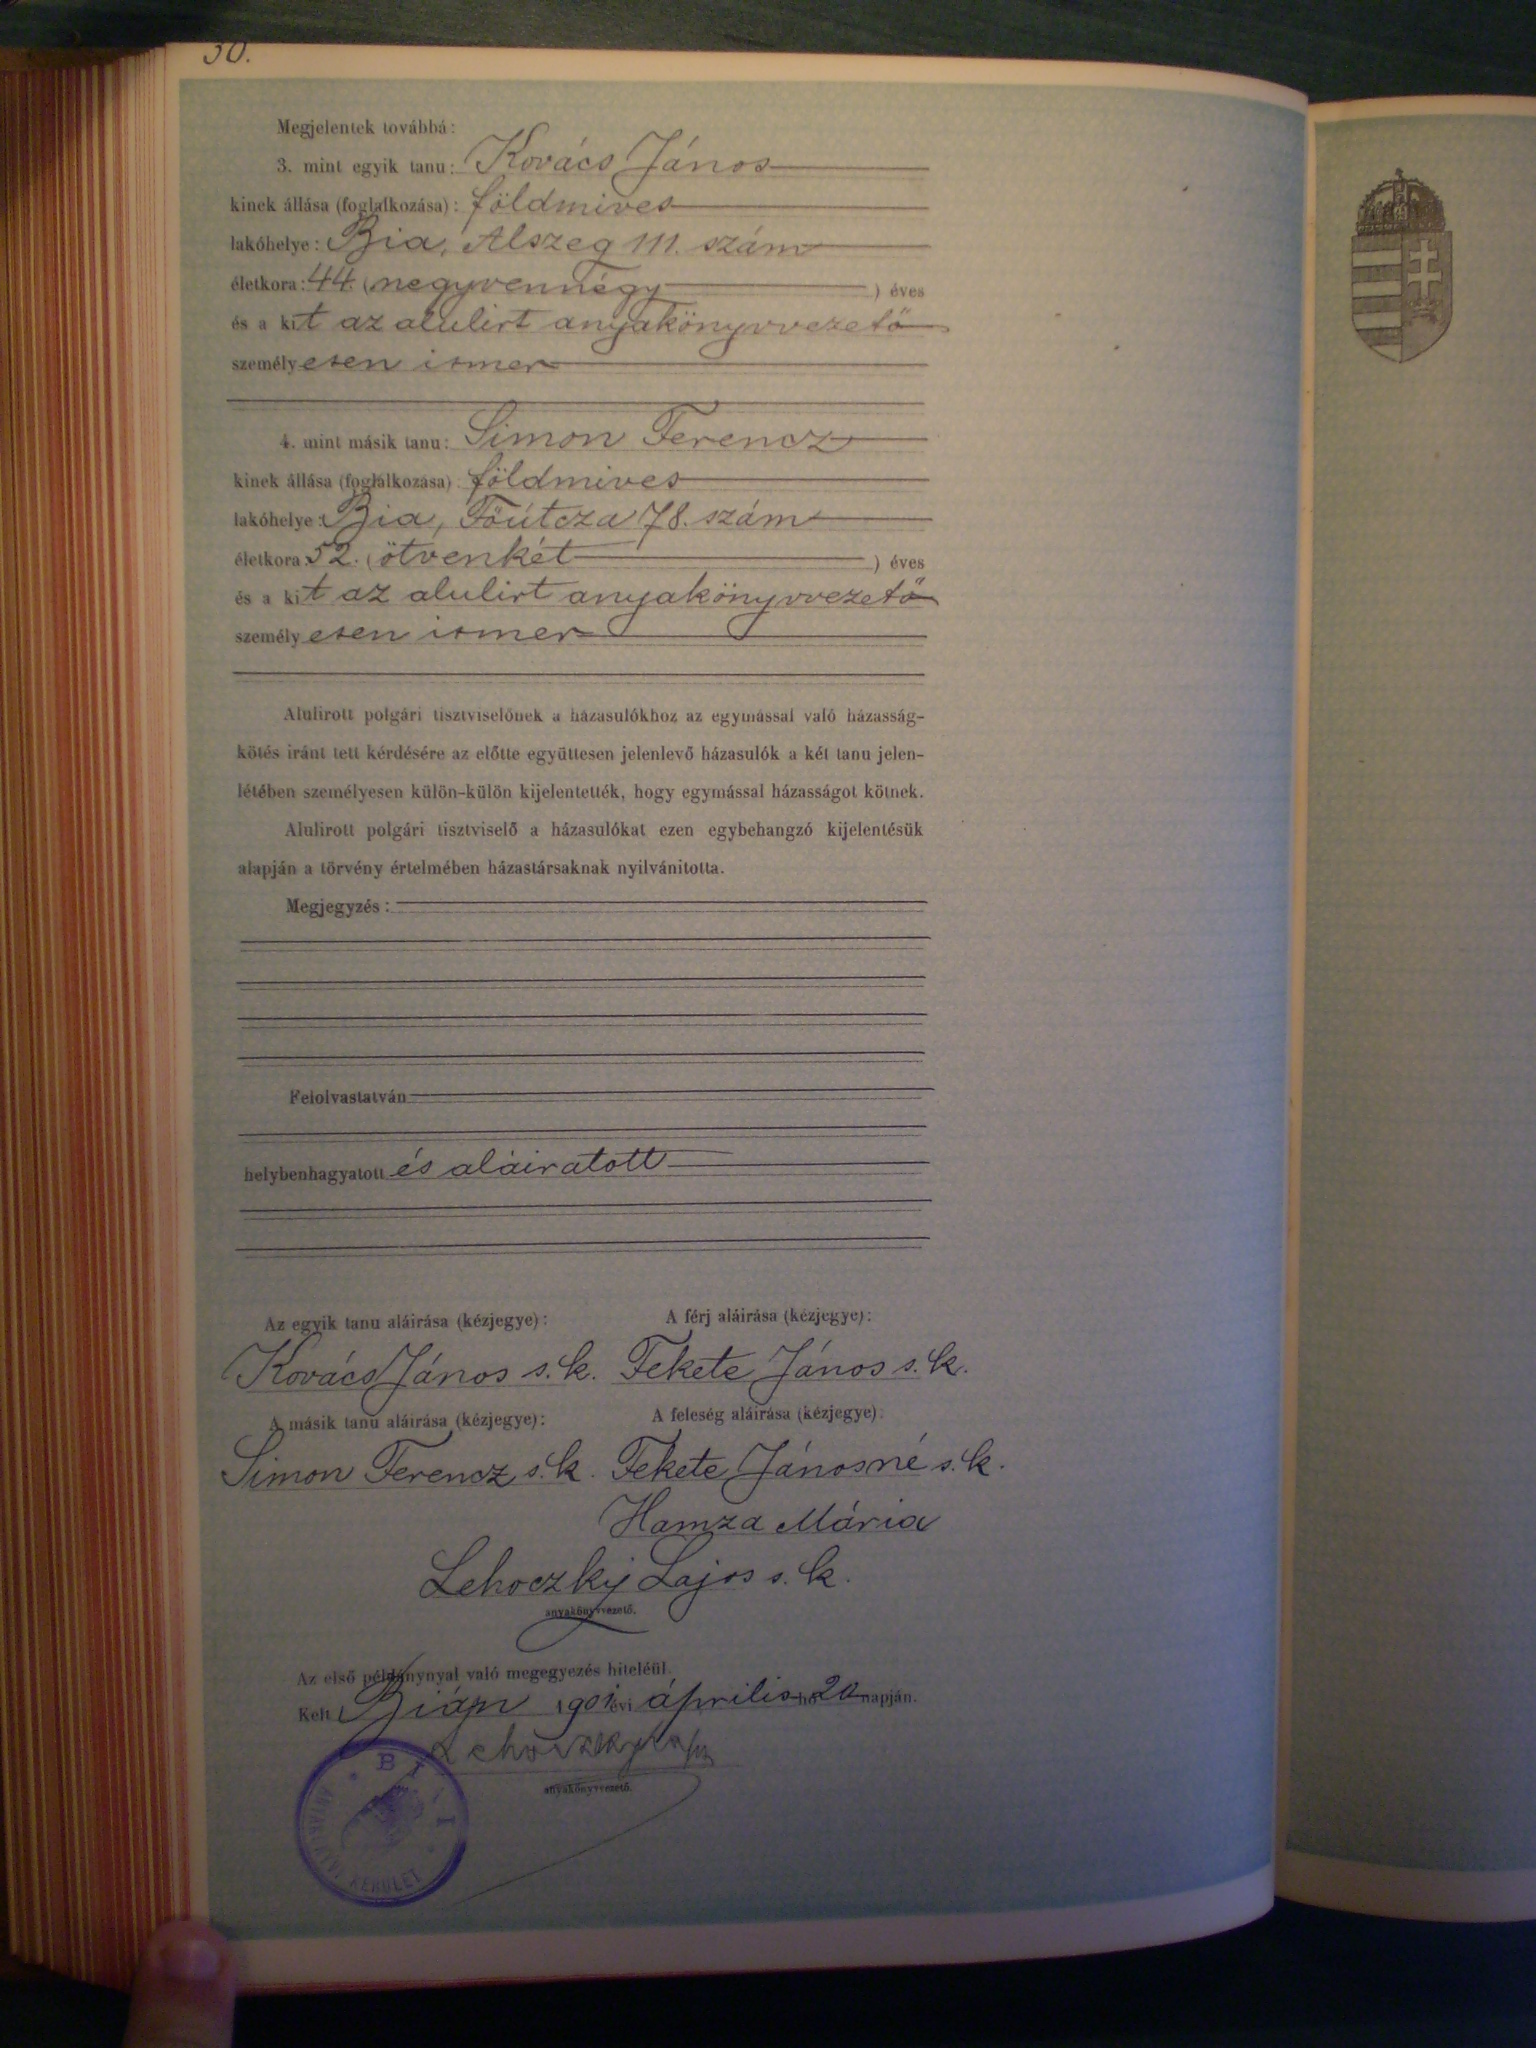 30.
Megjelentek továbbá:
3. mint egyik tanu: Kovács János
kinek állása (foglalkozása): földmives
lakóhelye: Bia, Alszeg 111. szám
életkora: 44. (negyvennégy) éves
és a kit az alulirt anyakönyvvezető
személyesen ismer
4. mint másik tanu: Simon Ferencz
kinek állása (foglalkozása): földmives
lakóhelye: Bia, Főútcza 78. szám
életkora: 52. (ötvenkét) éves
és a kit az alulirt anyakönyvvezető
személyesen ismer
Alulirott polgári tisztviselőnek a házasulókhoz az egymással való házasság-
kötés iránt tett kérdésére az előtte együttesen jelenlevő házasulók a két tanu jelen-
létében személyesen külön-külön kijelentették, hogy egymással házasságot kötnek.
Alulirott polgári tisztviselő a házasulókat ezen egybehangzó kijelentésük
alapján a törvény értelmében házastársaknak nyilvánitotta.
Megjegyzés:
Felolvastatván
helybenhagyatott és aláiratott
Az egyik tanu aláirása (kézjegye): A férj aláirása (kézjegye):
Kovács János s. k. Fekete János s. k.
A másik tanu aláirása (kézjegye): A feleség aláirása (kézjegye):
Simon Ferencz s. k. Fekete Jánosné s. k.
Hamza Mária
Lehoczky Lajos s. k.
anyakönyvvezető.
Az első példánynyal való megegyezés hiteléül.
Kelt Bián 1901 évi április hó 20 napján.
Lehoczky Lajos
anyakönyvvezető.
BIAI
KERÜLET